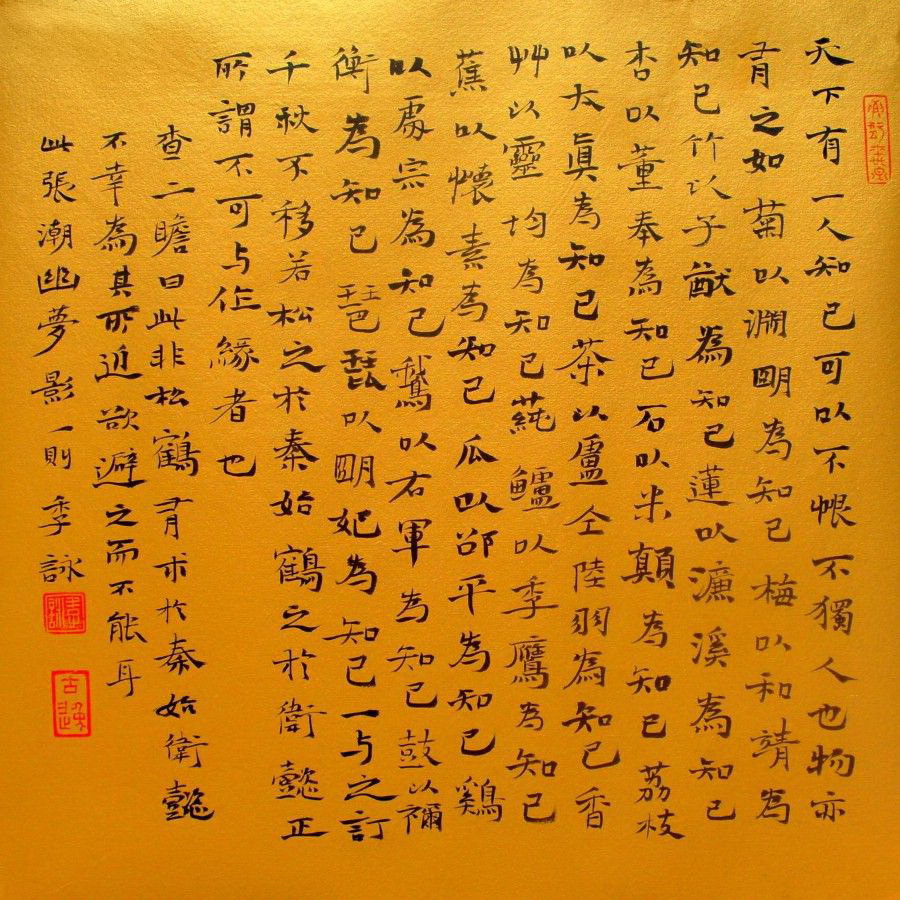 天下有一人知己可以不恨不獨人也物亦
有之如菊以淵明為知己梅以和靖為
知己竹以子猷為知己蓮以濂溪為知己
杏以董奉為知己石以米顛為知己荔枝
以太眞為知己茶以盧仝陸羽為知己香
艸以靈均為知己蒓鱸以季鷹為知己
蕉以懷素為知己瓜以邵平為知己鷄
以處宗為知己鵝以右軍為知己鼓以禰
衡為知己琶琵以明妃為知己一与之訂
千秋不移若松之於秦始鶴之於衛懿正
所謂不可与作緣者也
查二瞻曰此非松鶴有求於秦始衛懿
不幸為其所近欲避之而不能耳
此張潮幽夢影一則季詠